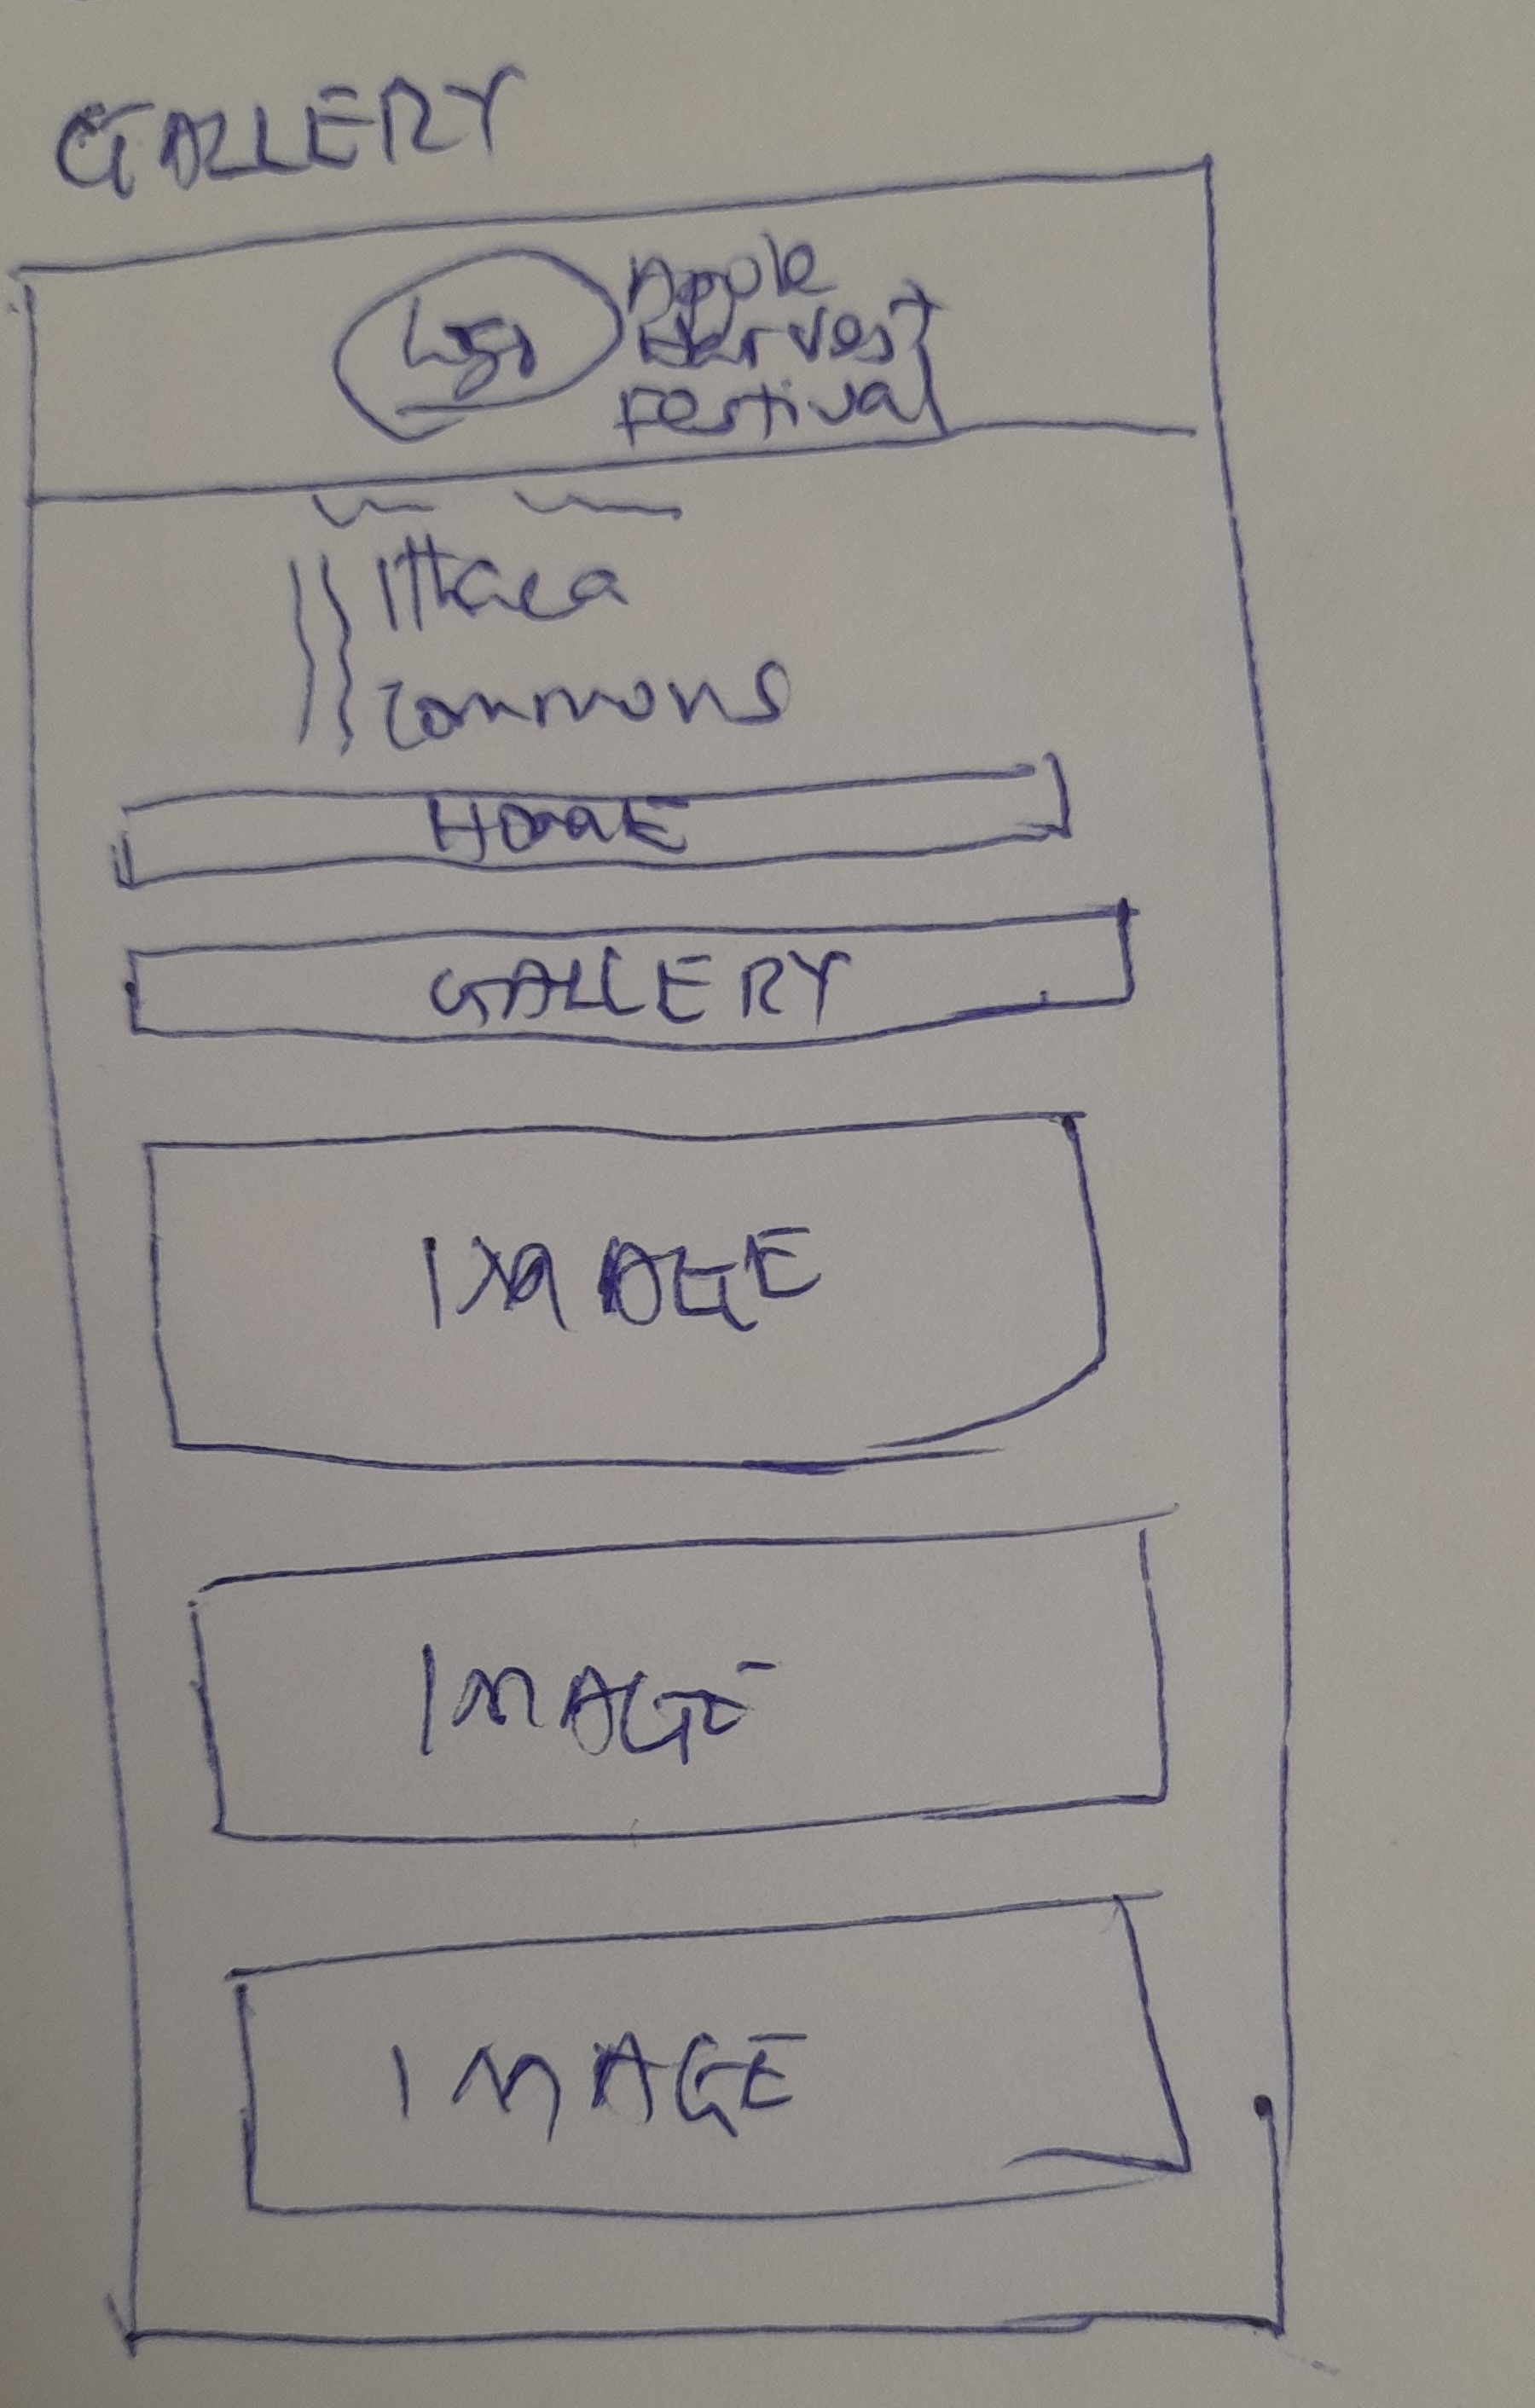 GALLERY
Logo
Apple
Harvest
Festival
Ithaca
commons
HOME
GALLERY
IMAGE
IMAGE
IMAGE